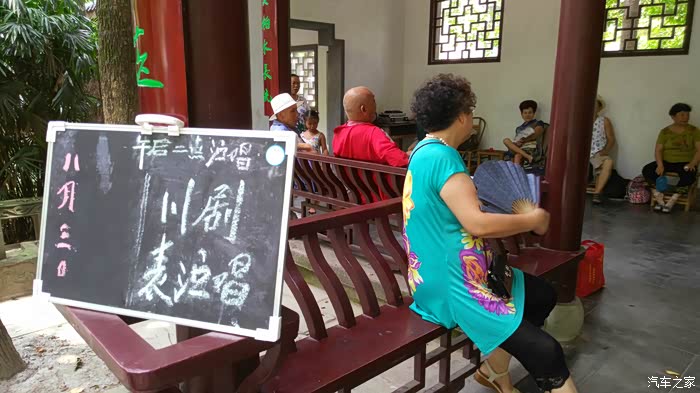 八月三日
午后二点演唱
川剧
表演唱
汽车之家